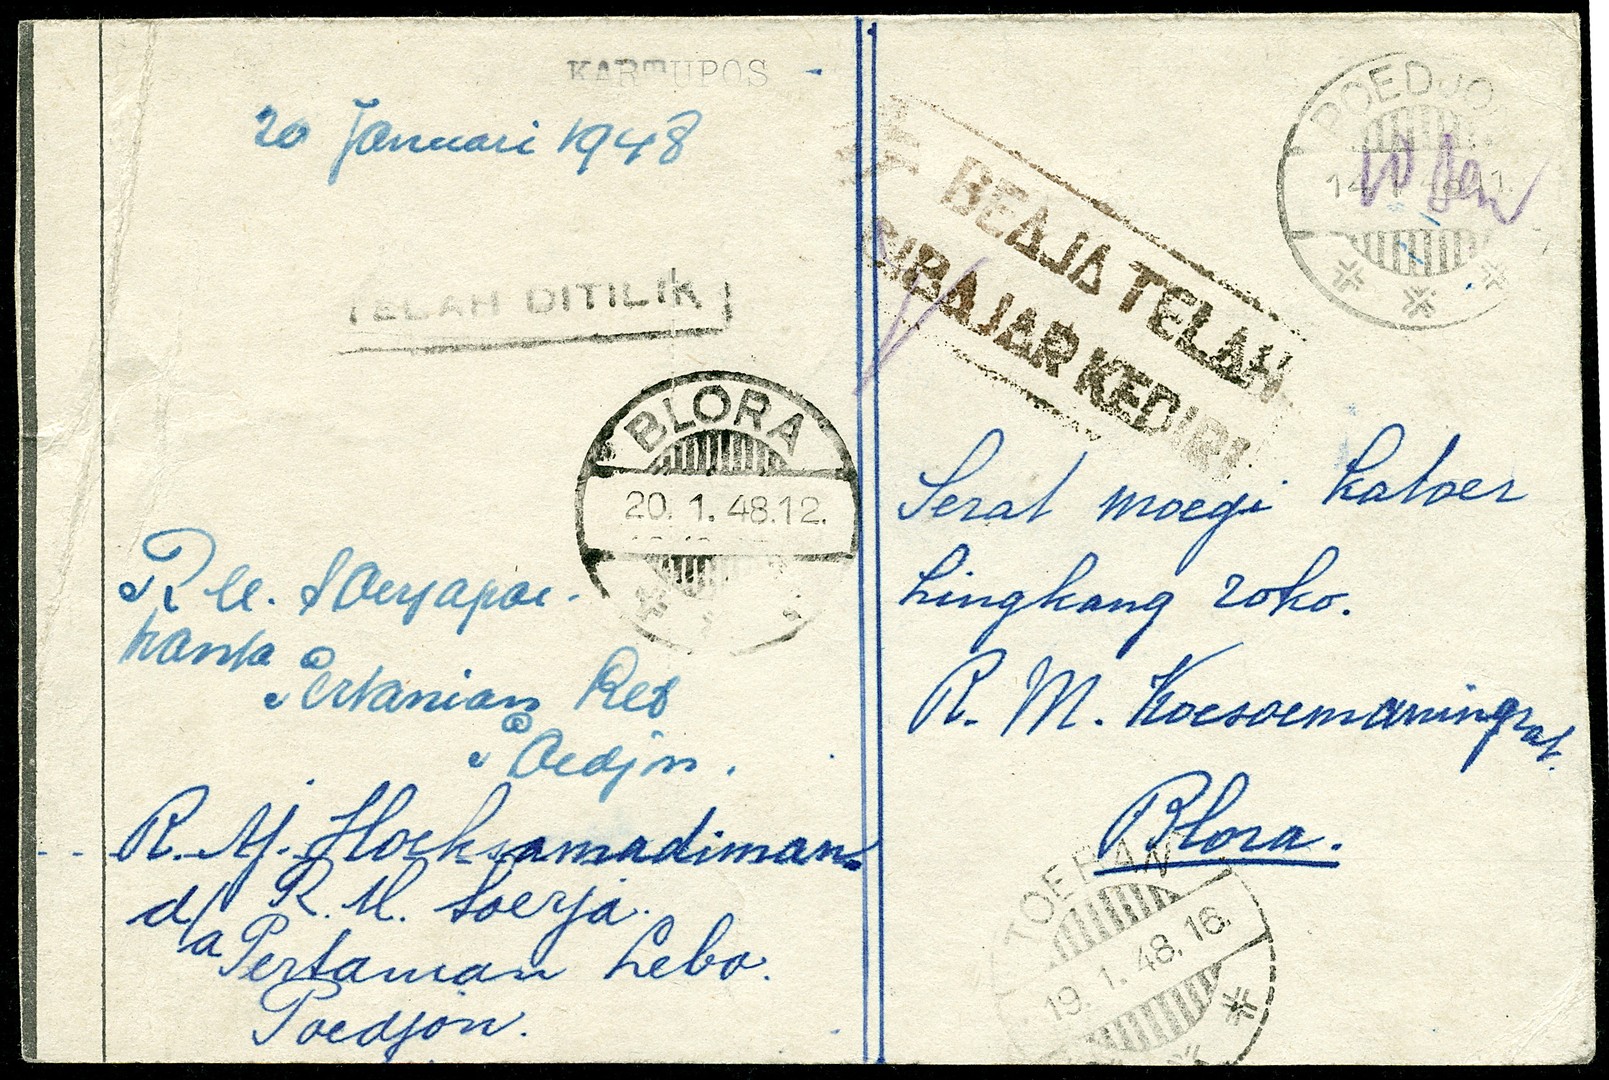 KARTUPOS
20 Januari 1948
TELAH DITILIK
BLORA
20. 1. 48.12.
R. M. Soerjapoe-
tranta
Pertanian Reb
Poedjon.
R. Aj. Hoeksamadiman.
d/a R. M. Soerja.
Pertanian Lebo.
Poedjon.
BEAJA TELAH
DIBAJAR KEDIRI
POEDJO
14. 1. 48 11.
10 sen
Serat moegi katoer
hingkang roko.
R. M. Koesoemaningrat.
Blora.
TOEBAN
19. 1. 48. 16.